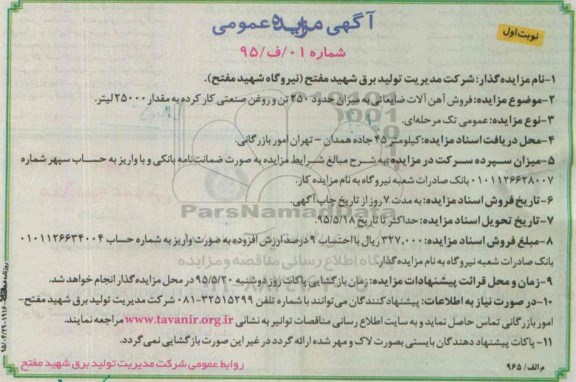 آگهی مزایده عمومی
نوبت اول
شماره ۰۱/ف/۹۵
۱-نام مزایده گذار: شرکت مدیریت تولید برق شهید مفتح (نیروگاه شهید مفتح).
۲-موضوع مزایده: فروش آهن آلات ضایعاتی به میزان حدود ۲۵۰ تن و روغن صنعتی کار کرده به مقدار ۲۵۰۰۰ لیتر.
۳-نوع مزایده: عمومی تک مرحله‌ای.
۴-محل دریافت اسناد مزایده: کیلومتر ۴۵ جاده همدان - تهران امور بازرگانی.
۵-میزان سپرده شرکت در مزایده: به شرح مبالغ شرایط مزایده به صورت ضمانت‌نامه بانکی و یا واریز به حساب سپهر شماره
۰۱۰۱۱۲۶۶۲۸۰۰۷ بانک صادرات شعبه نیروگاه به نام مزایده گذار.
۶-تاریخ فروش اسناد مزایده: به مدت ۷ روز از تاریخ چاپ آگهی.
۷-تاریخ تحویل اسناد مزایده: حداکثر تا تاریخ ۹۵/۵/۱۸.
۸-مبلغ فروش اسناد مزایده: ۳۲۷,۰۰۰ ریال با احتساب ۹ درصد ارزش افزوده به صورت واریز به شماره حساب ۰۱۰۱۱۲۶۶۳۴۰۰۴
بانک صادرات شعبه نیروگاه به نام مزایده گذار.
۹-زمان و محل قرائت پیشنهادات مزایده: زمان بازگشایی پاکات روز دوشنبه ۹۵/۵/۲۰ در محل مزایده گذار انجام خواهد شد.
۱۰-در صورت نیاز به اطلاعات: پیشنهاد کنندگان می‌توانند با شماره تلفن ۳۲۵۱۵۲۹۹-۰۸۱ شرکت مدیریت تولید برق شهید مفتح-
امور بازرگانی تماس حاصل نماید و به سایت اطلاع رسانی مناقصات توانیر به نشانی www.tavanir.org.ir مراجعه نمایند.
۱۱- پاکات پیشنهاد دهندگان بایستی بصورت لاک و مهر شده ارائه گردد در غیر این صورت بازگشایی نمی گردد.
روابط عمومی شرکت مدیریت تولید برق شهید مفتح
م الف/ ۹۶۵
ParsNamadData